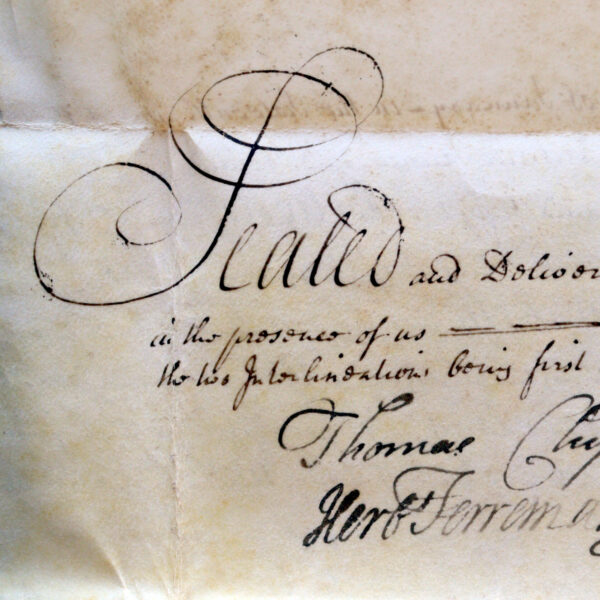 Sealed and Deliver
in the presence of us
the two Interlineations being first
Thomas
Herbt Ferreman